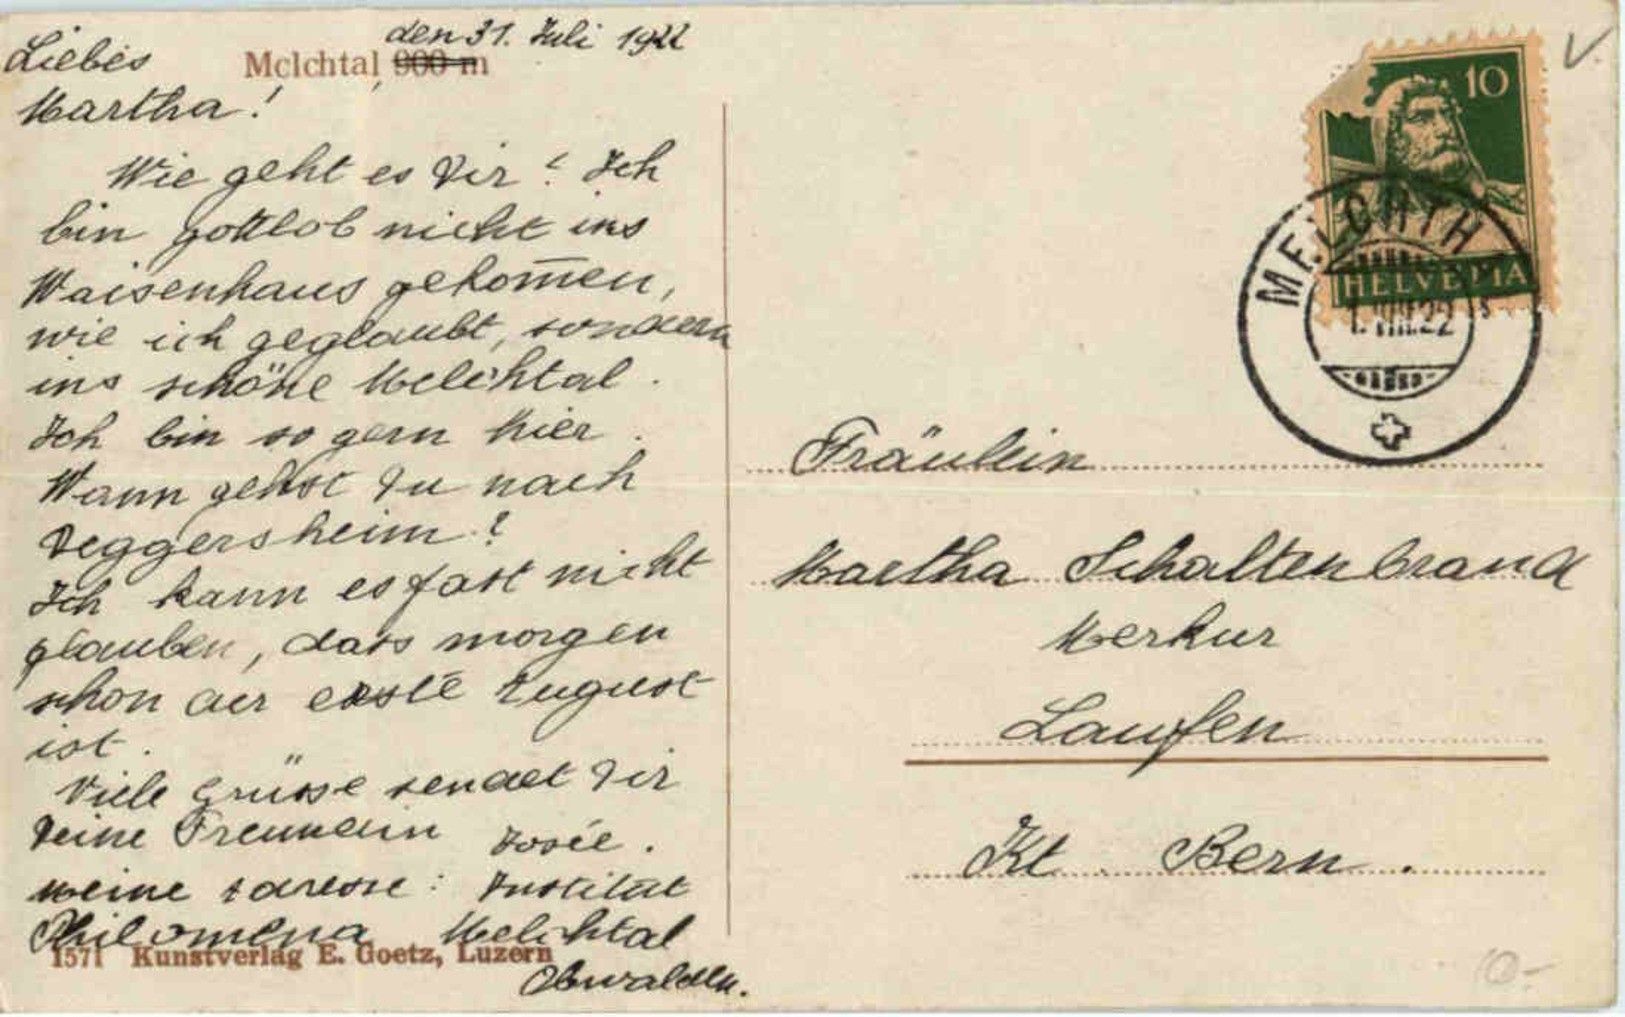 den 31. Juli 1922
Liebes
Melchtal, 900 m
Martha!
Wie geht es Dir? Ich
bin gottlob nicht ins
Waisenhaus gekom̅en,
wie ich geglaubt, sondern
ins schöne Melchtal.
Ich bin so gern hier.
Wann gehst Du nach
Deggersheim?
Ich kann es fast nicht
glauben, dass morgen
schon der erste August
ist.
Viele Grüsse sendet Dir
Deine Freundin Josie.
meine Adresse: Institut
Philomena Melchtal
1571 Kunstverlag E. Goetz, Luzern
Obwalden.
10
HELVETIA
MELCHTH
1.VIII.22
Fräulein
Martha Schaltenbrand
Merkur
Laufen
Kt. Bern.
10.-